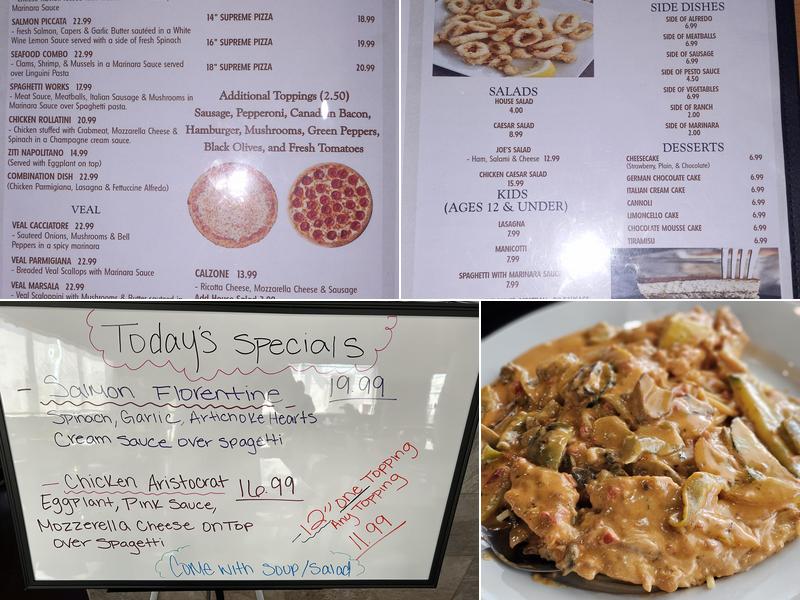 Marinara Sauce
SALMON PICCATA 22.99
- Fresh Salmon, Capers & Garlic Butter sautéed in a White
Wine Lemon Sauce served with a side of Fresh Spinach
SEAFOOD COMBO 22.99
- Clams, Shrimp, & Mussels in a Marinara Sauce served
over Linguini Pasta
SPAGHETTI WORKS 17.99
- Meat Sauce, Meatballs, Italian Sausage & Mushrooms in
Marinara Sauce over Spaghetti pasta.
CHICKEN ROLLATINI 20.99
- Chicken stuffed with Crabmeat, Mozzarella Cheese &
Spinach in a Champagne cream sauce.
ZITI NAPOLITANO 14.99
(Served with Eggplant on top)
COMBINATION DISH 22.99
(Chicken Parmigiana, Lasagna & Fettuccine Alfredo)
VEAL
VEAL CACCIATORE 22.99
- Sauteed Onions, Mushrooms & Bell
Peppers in a spicy marinara
VEAL PARMIGIANA 22.99
- Breaded Veal Scallops with Marinara Sauce
VEAL MARSALA 22.99
- Veal Scaloppini with Mushrooms & Butter sauteed in
14" SUPREME PIZZA 18.99
16" SUPREME PIZZA 19.99
18" SUPREME PIZZA 20.99
Additional Toppings (2.50)
Sausage, Pepperoni, Canadian Bacon,
Hamburger, Mushrooms, Green Peppers,
Black Olives, and Fresh Tomatoes
CALZONE 13.99
- Ricotta Cheese, Mozzarella Cheese & Sausage
Add House Salad
SALADS
HOUSE SALAD
4.00
CAESAR SALAD
8.99
JOE'S SALAD
- Ham, Salami & Cheese 12.99
CHICKEN CAESAR SALAD
15.99
KIDS
(AGES 12 & UNDER)
LASAGNA
7.99
MANICOTTI
7.99
SPAGHETTI WITH MARINARA SAUCE
7.99
SIDE DISHES
SIDE OF ALFREDO
6.99
SIDE OF MEATBALLS
6.99
SIDE OF SAUSAGE
6.99
SIDE OF PESTO SAUCE
4.50
SIDE OF VEGETABLES
6.99
SIDE OF RANCH
2.00
SIDE OF MARINARA
2.00
DESSERTS
CHEESECAKE 6.99
(Strawberry, Plain, & Chocolate)
GERMAN CHOCOLATE CAKE 6.99
ITALIAN CREAM CAKE 6.99
CANNOLI 6.99
LIMONCELLO CAKE 6.99
CHOCOLATE MOUSSE CAKE 6.99
TIRAMISU 6.99
Today's Specials
- Salmon Florentine 19.99
Spinach, Garlic, Artichoke Hearts
Cream Sauce over spagetti
- Chicken Aristocrat 16.99
Eggplant, Pink Sauce,
Mozzerella Cheese on Top
over Spagetti
- 12" one Topping
Any Topping
11.99
Come with Soup/Salad